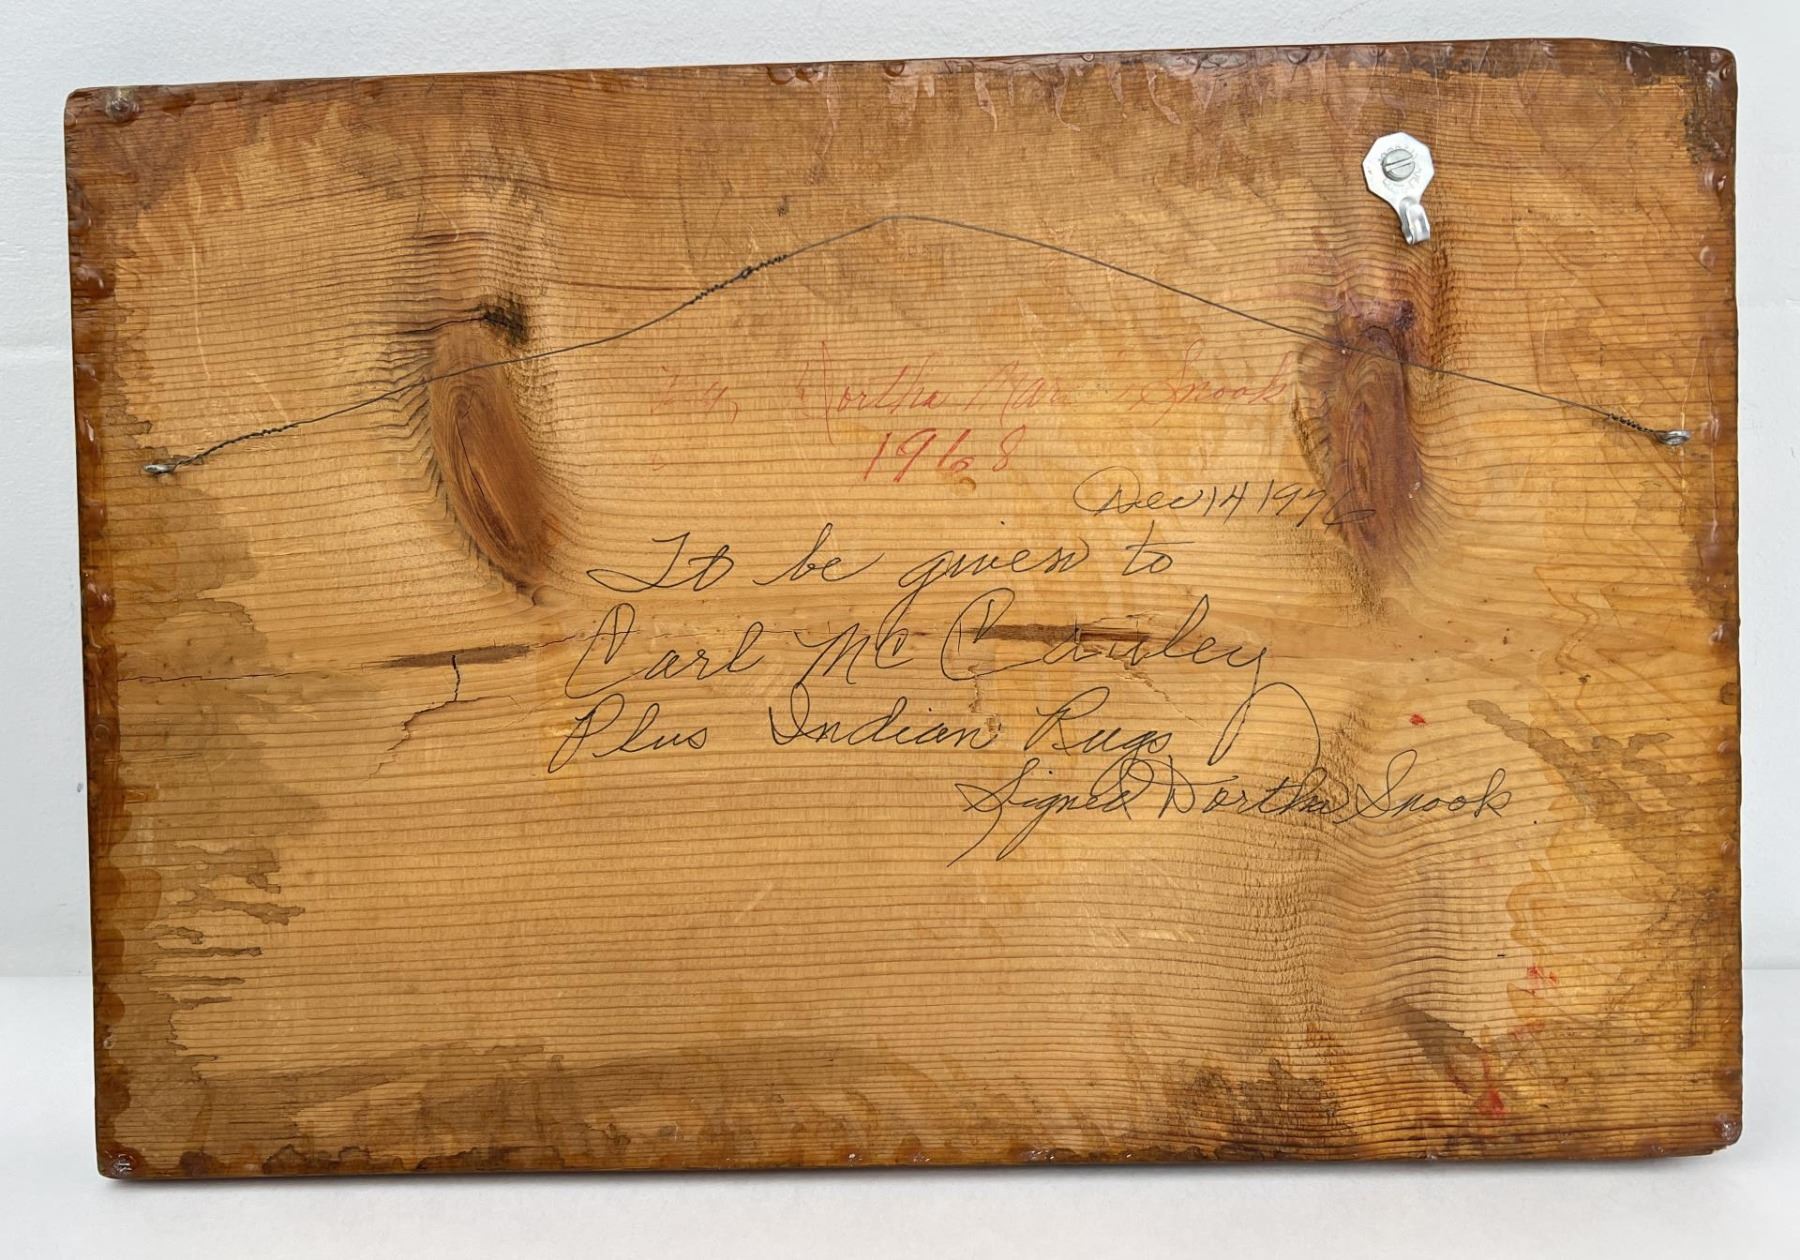 By, Dortha Mar Snook
1968
Dec 14 1976
To be given to
Carl McCauley
Plus Indian Rugs
Signed Dortha Snook